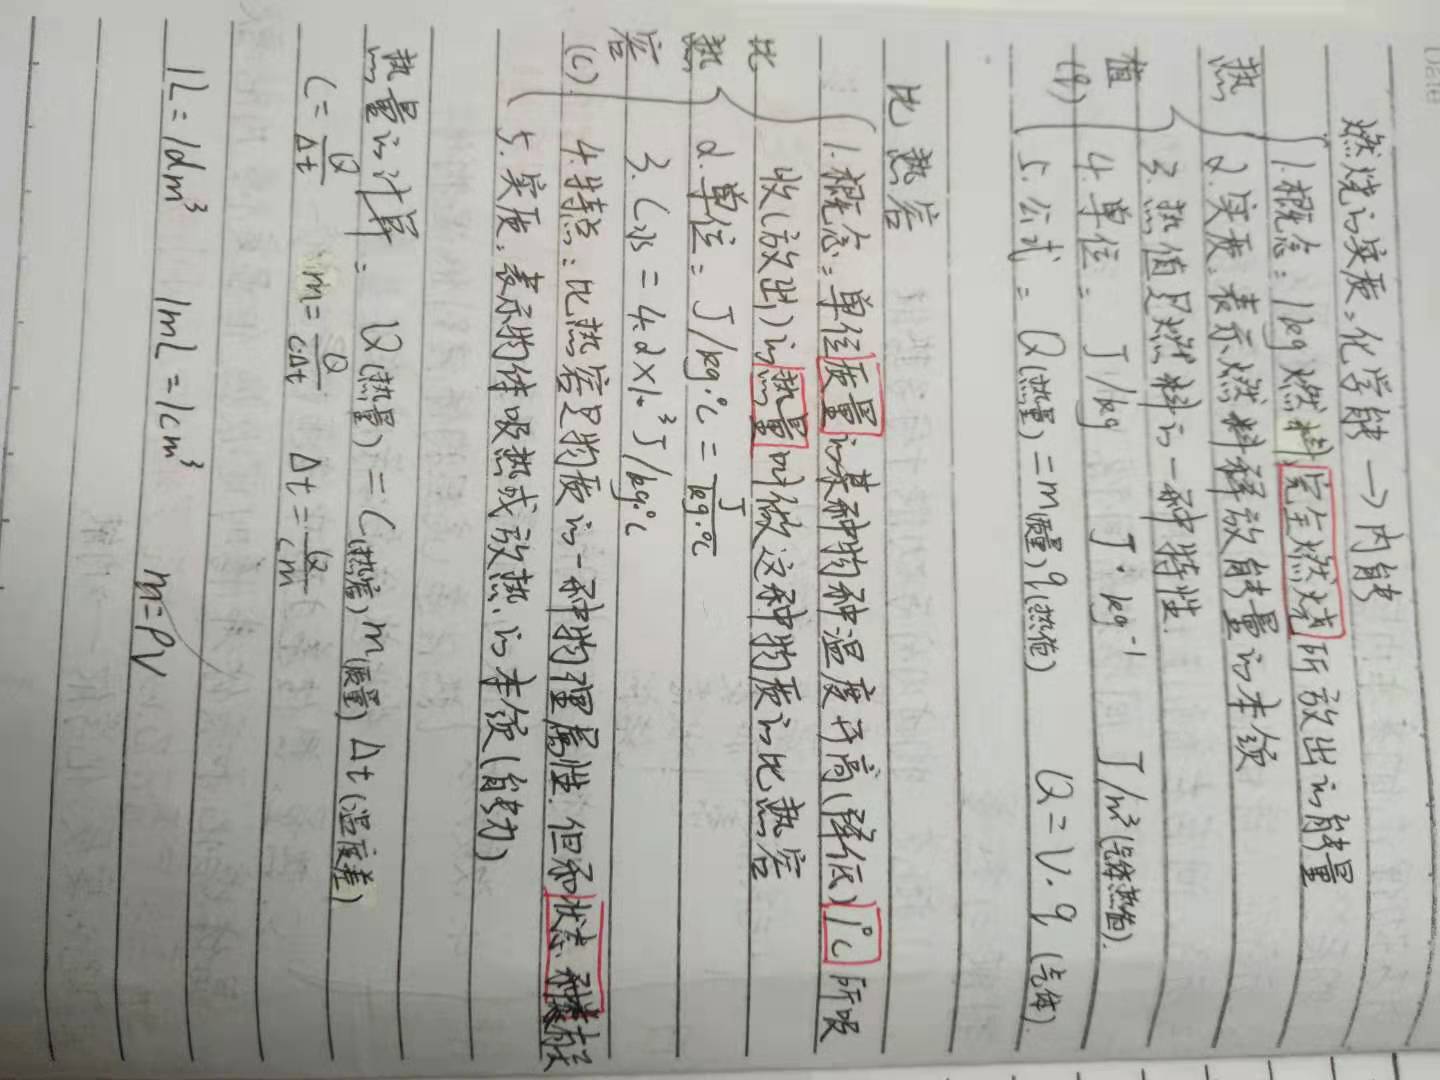 Date
燃烧的实质：化学能→内能
热值(q)
1.概念：1kg燃料完全燃烧所放出的能量
2.实质：表示燃料释放能量的本领
3.热值是燃料的一种特性.
4.单位：J/kg J·kg⁻¹ J/m³(气体热值).
5.公式：Q(热量)=m(质量)q(热值) Q=V·q (气体).
比热容
比热容(c)
1.概念：单位质量的某种物种温度升高(降低)1℃所吸
收(放出)的热量叫做这种物质的比热容
2.单位：J/kg·℃=J/kg·℃
3.C水=4.2×10³J/kg·℃
4.特点：比热容是物质的一种物理属性.但和状态、种类有关
5.实质：表示物体吸热或放热的本领(能力)
热量的计算：Q(热量)=C(热容)m(质量)Δt(温度差)
C=Q/Δt m=Q/CΔt Δt=Q/cm
1L=1dm³ 1mL=1cm³ m=ρV